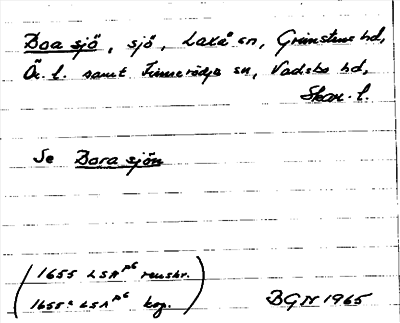 Boa sjö, sjö, Laxå sn, Grimstens hd,
Ör. l. samt Finnerödja sn, Vadsbo hd,
Skar. l.
Se Borasjön
(1655 LSA p6 renskr.
1655c LSA p6 kop.)
BGN 1965